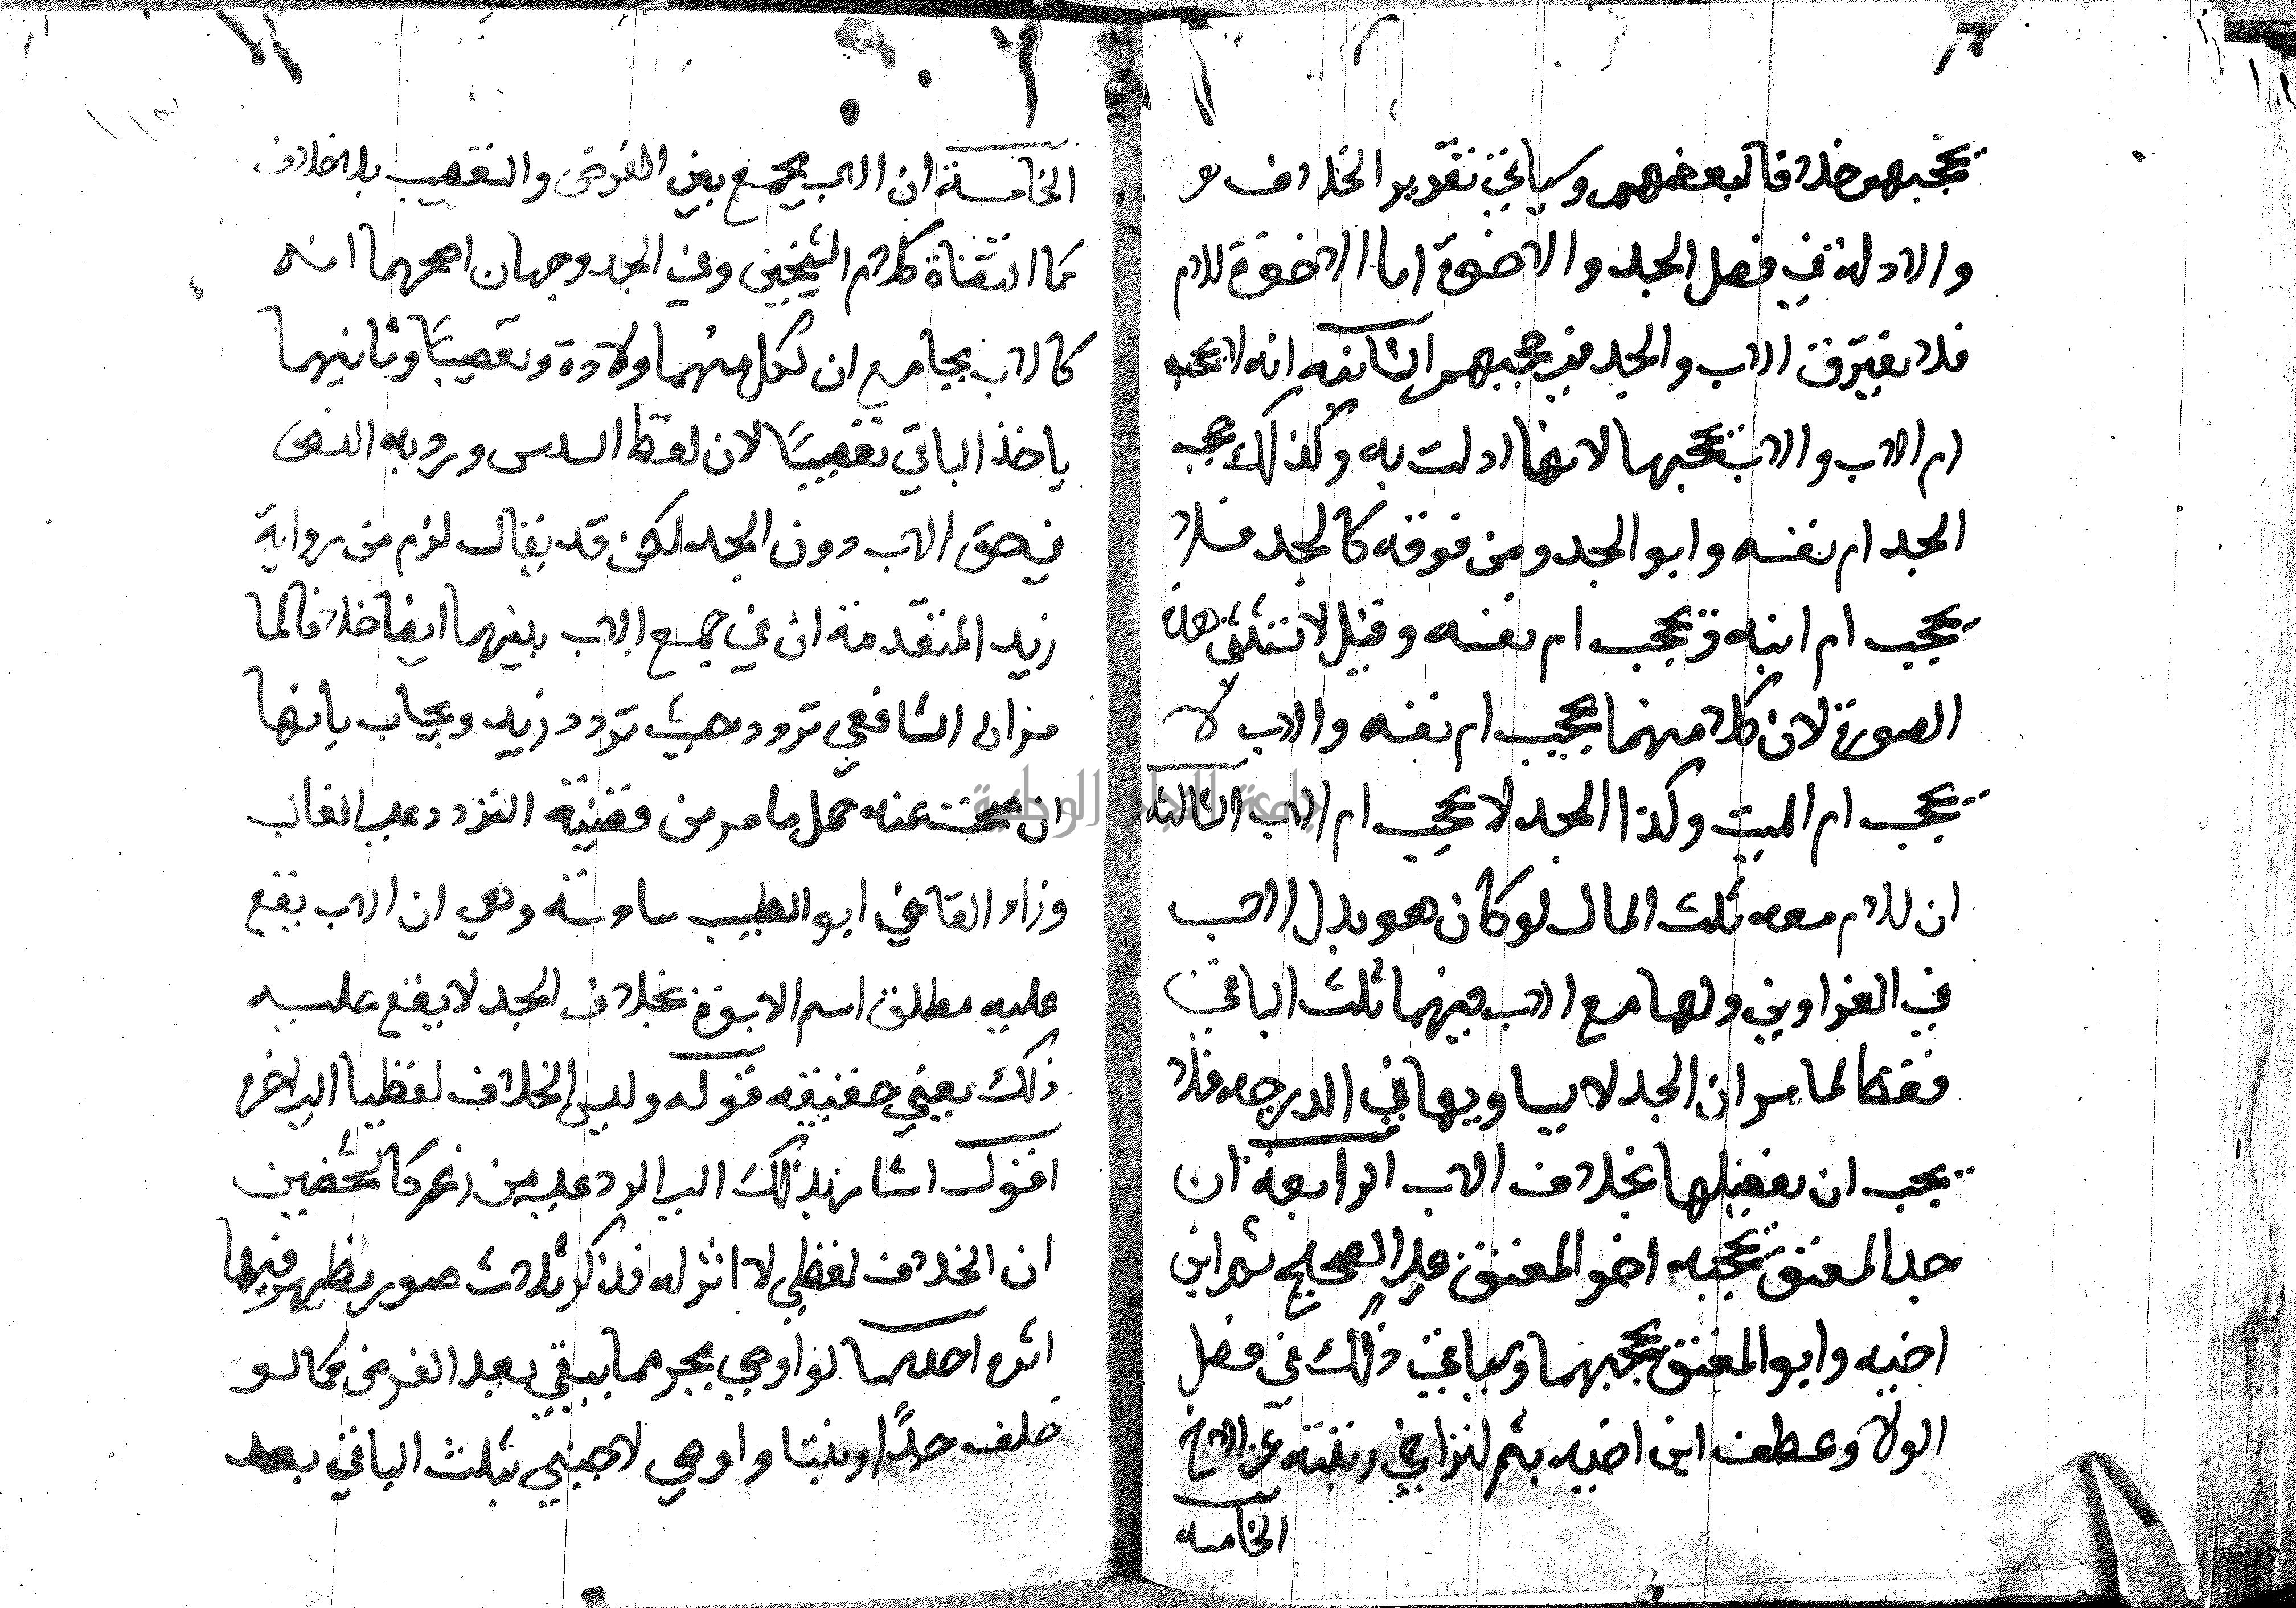 يحجبهم خلافا لبعضهم وسياتي تقدير الخلاف
والادلة في فصل الجد والاخوة اما الاخوة للام
فلا يفترق الاب والجد في حجبهم الثانيه انه لا يحجب
ام الاب والاب يحجبها لانها ادلت به وكذلك يحجب
الجد ام نفسه وابو الجد ومن فوقه كالجد فلا
يحجب ام ابنه ويحجب ام نفسه وقيل لا تستثنى هذه
الصورة لان كلا منهما يحجب ام نفسه والاب لا
يحجب ام الميت وكذا الجد لا يحجب ام الاب الثالثه
ان للام معه ثلث المال لو كان هو بدل الاب
في الغراوين ولها مع الاب فيهما ثلث الباقي
فقط لما مر ان الجد لا يساويها في الدرجه فلا
يجب ان يفضلها بخلاف الاب الرابعة ان
جد المعتق يحجبه اخو المعتق على الصحيح ثم ابن
اخيه وابو المعتق يحجبهما وسياتي ذلك في فصل
الولا وعطف ابن اخيه بثم لتراخي رتبته عن الاخ
الخامسه
الخامسة ان الاب يجمع بين الفرض والتعصيب بلا خلاف
كما اقتضاه كلام الشيخين وفي الجد وجهان اصحهما انه
كالاب بجامع ان لكل منهما ولادة وتعصيبا وثانيهما
ياخذ الباقي تعصيبا لان لفظ السدس ورد به النص
في حق الاب دون الجد لكن قد يقال لزم من رواية
زيد المتقدمة ان في جمع الاب بينهما ايضا خلافا لما
مر ان الشافعي تردد حيث تردد زيد ويجاب بانها
ان صحت عنه حمل ما مر من قضية التردد على الغالب
وزاد القاضي ابو الطيب سادسة وهي ان الاب يقع
عليه مطلق اسم الابوة بخلاف الجد لا يقع عليه
ذلك يعني حقيقه قوله وليس الخلاف لفظيا الى اخره
اقول اشار بذلك الى الرد على من زعم كالخفين
ان الخلاف لفظي لا اثر له فذكر ثلاث صور يظهر فيها
اثره احدها لو اوصى بجزء مما يبقى بعد الفرض كما لو
خلف جدا وبنتا واوصى لاجنبي بثلث الباقي بعد
جامعة النجاح الوطنية